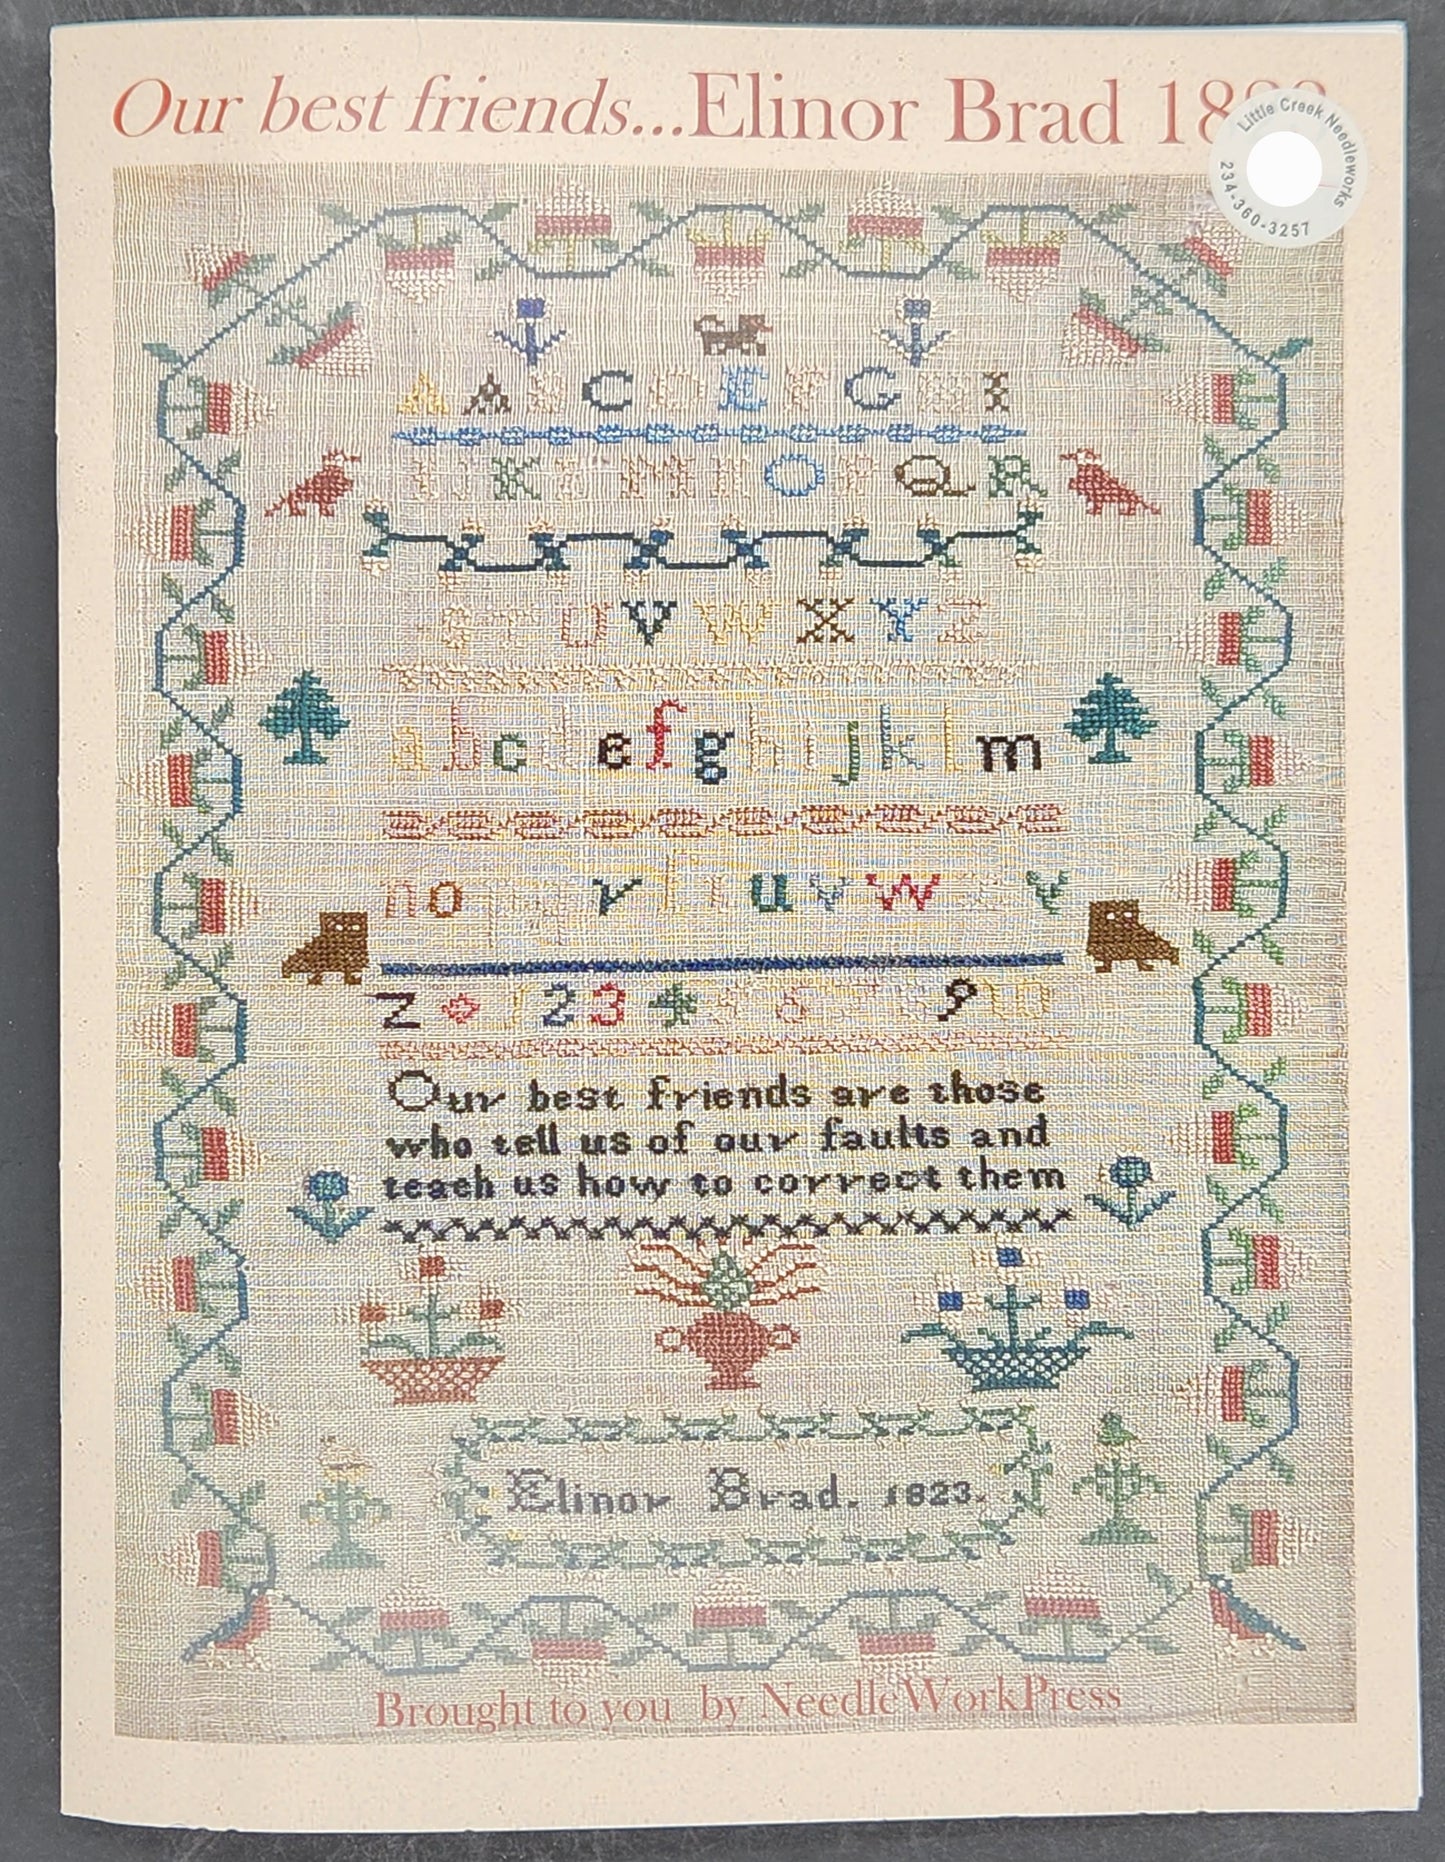 Our best friends...Elinor Brad 1823
Little Creek Needleworks
234-360-3257
A A B C D E F G H I
I J K L M N O P Q R
S T U V W X Y Z
a b c d e f g h i j k l m
n o r u v w y
z 1 2 3 4 6 9 10
Our best friends are those
who tell us of our faults and
teach us how to correct them
Elinor Brad. 1823.
Brought to you by NeedleWorkPress